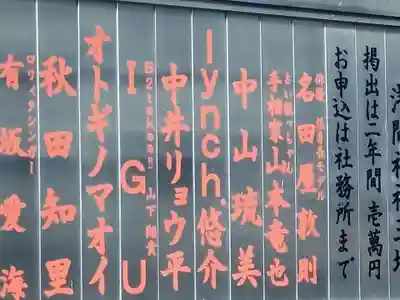 掲出は二年間 壱萬円
お申込は社務所まで
名田屋敦則
手相家山本竜也
中山琉美
lynch.悠介
中井リョウ平
B2takeon!! 山下和貴
IGU
オトギノマオイ
秋田知里
ロリィタシンガー
有坂愛海